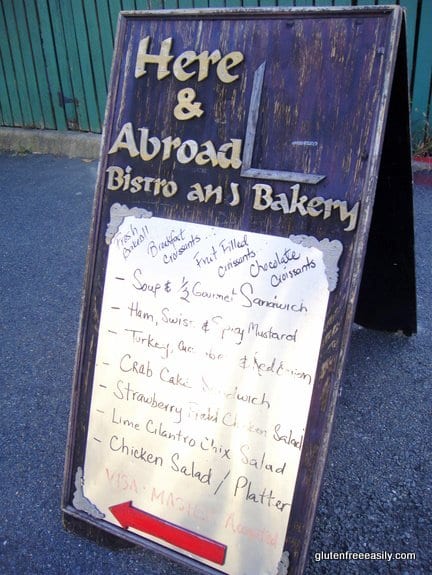 Here
&
Abroad
Bistro and Bakery
Fresh Baked!! Breakfast Croissants Fruit Filled Croissants Chocolate Croissants
- Soup & 1/2 Gourmet Sandwich
- Ham, Swiss & Spicy Mustard
- Turkey, & Red Onion
- Crab Cake Sandwich
- Strawberry Chicken Salad
- Lime Cilantro Chix Salad
- Chicken Salad / Platter
VISA - MASTER Accepted
glutenfreeeasily.com